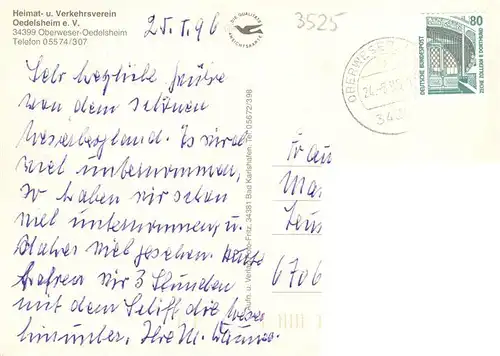 Heimat- u. Verkehrsverein
Oedelsheim e. V.
34399 Oberweser-Oedelsheim
Telefon 05574/307
25.8.96
3525
DIE QUALITÄTS
ANSICHTSKARTE
80
DEUTSCHE BUNDESPOST
ZECHE ZOLLERN II DORTMUND
OBERWESER
Sehr herzliche Grüße
von dem schönen
Weserbergland. Es wird
viel unternommen,
so haben wir schon
viel unternommen u.
viel gesehen. Heute
fahren wir 3 Stunden
mit dem Schiff die Weser
hinunter, Ihre M.
Frau
6706
Aufn. u. Verlag: Foto-Fritz, 34381 Bad Karlshafen, Tel. 05672/398